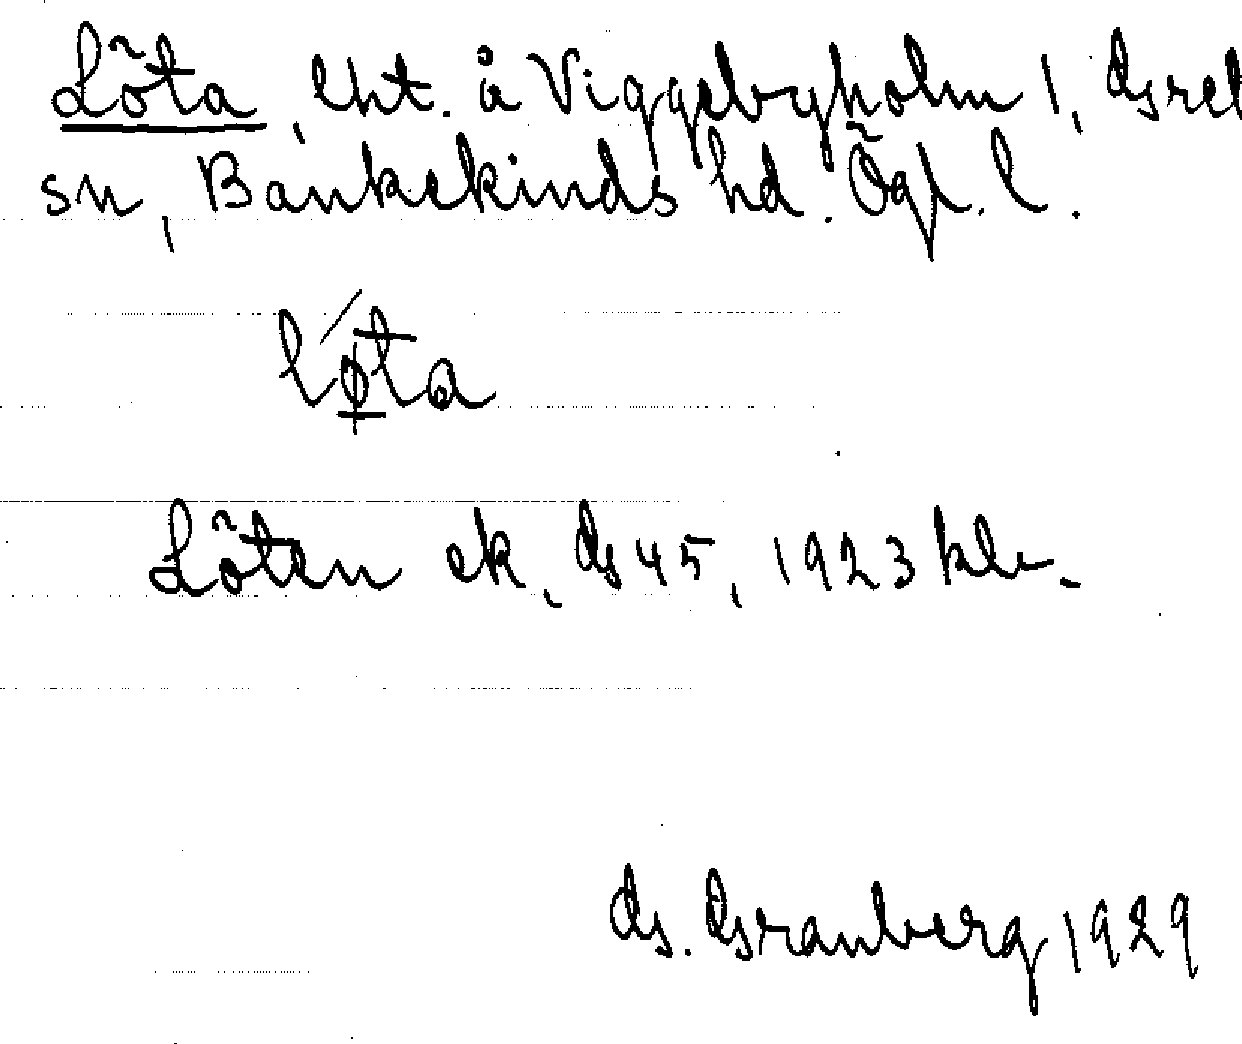 Löta, lht. å Viggebyholm 1, Greb
sn, Bankekinds hd. Ögl. l.
l´ø̱ta
Löten ek, G 45, 1923
G. Granberg 1929